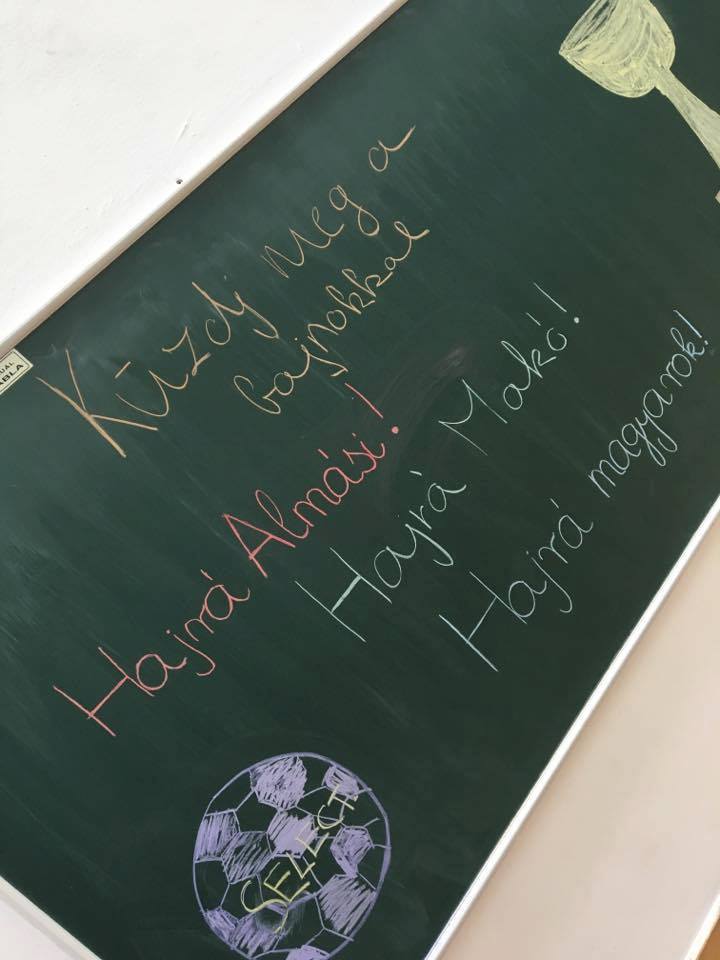 Küzdj meg a
bajnokkal
Hajrá Almási!
Hajrá Makó!
Hajrá magyarok!
SELECT